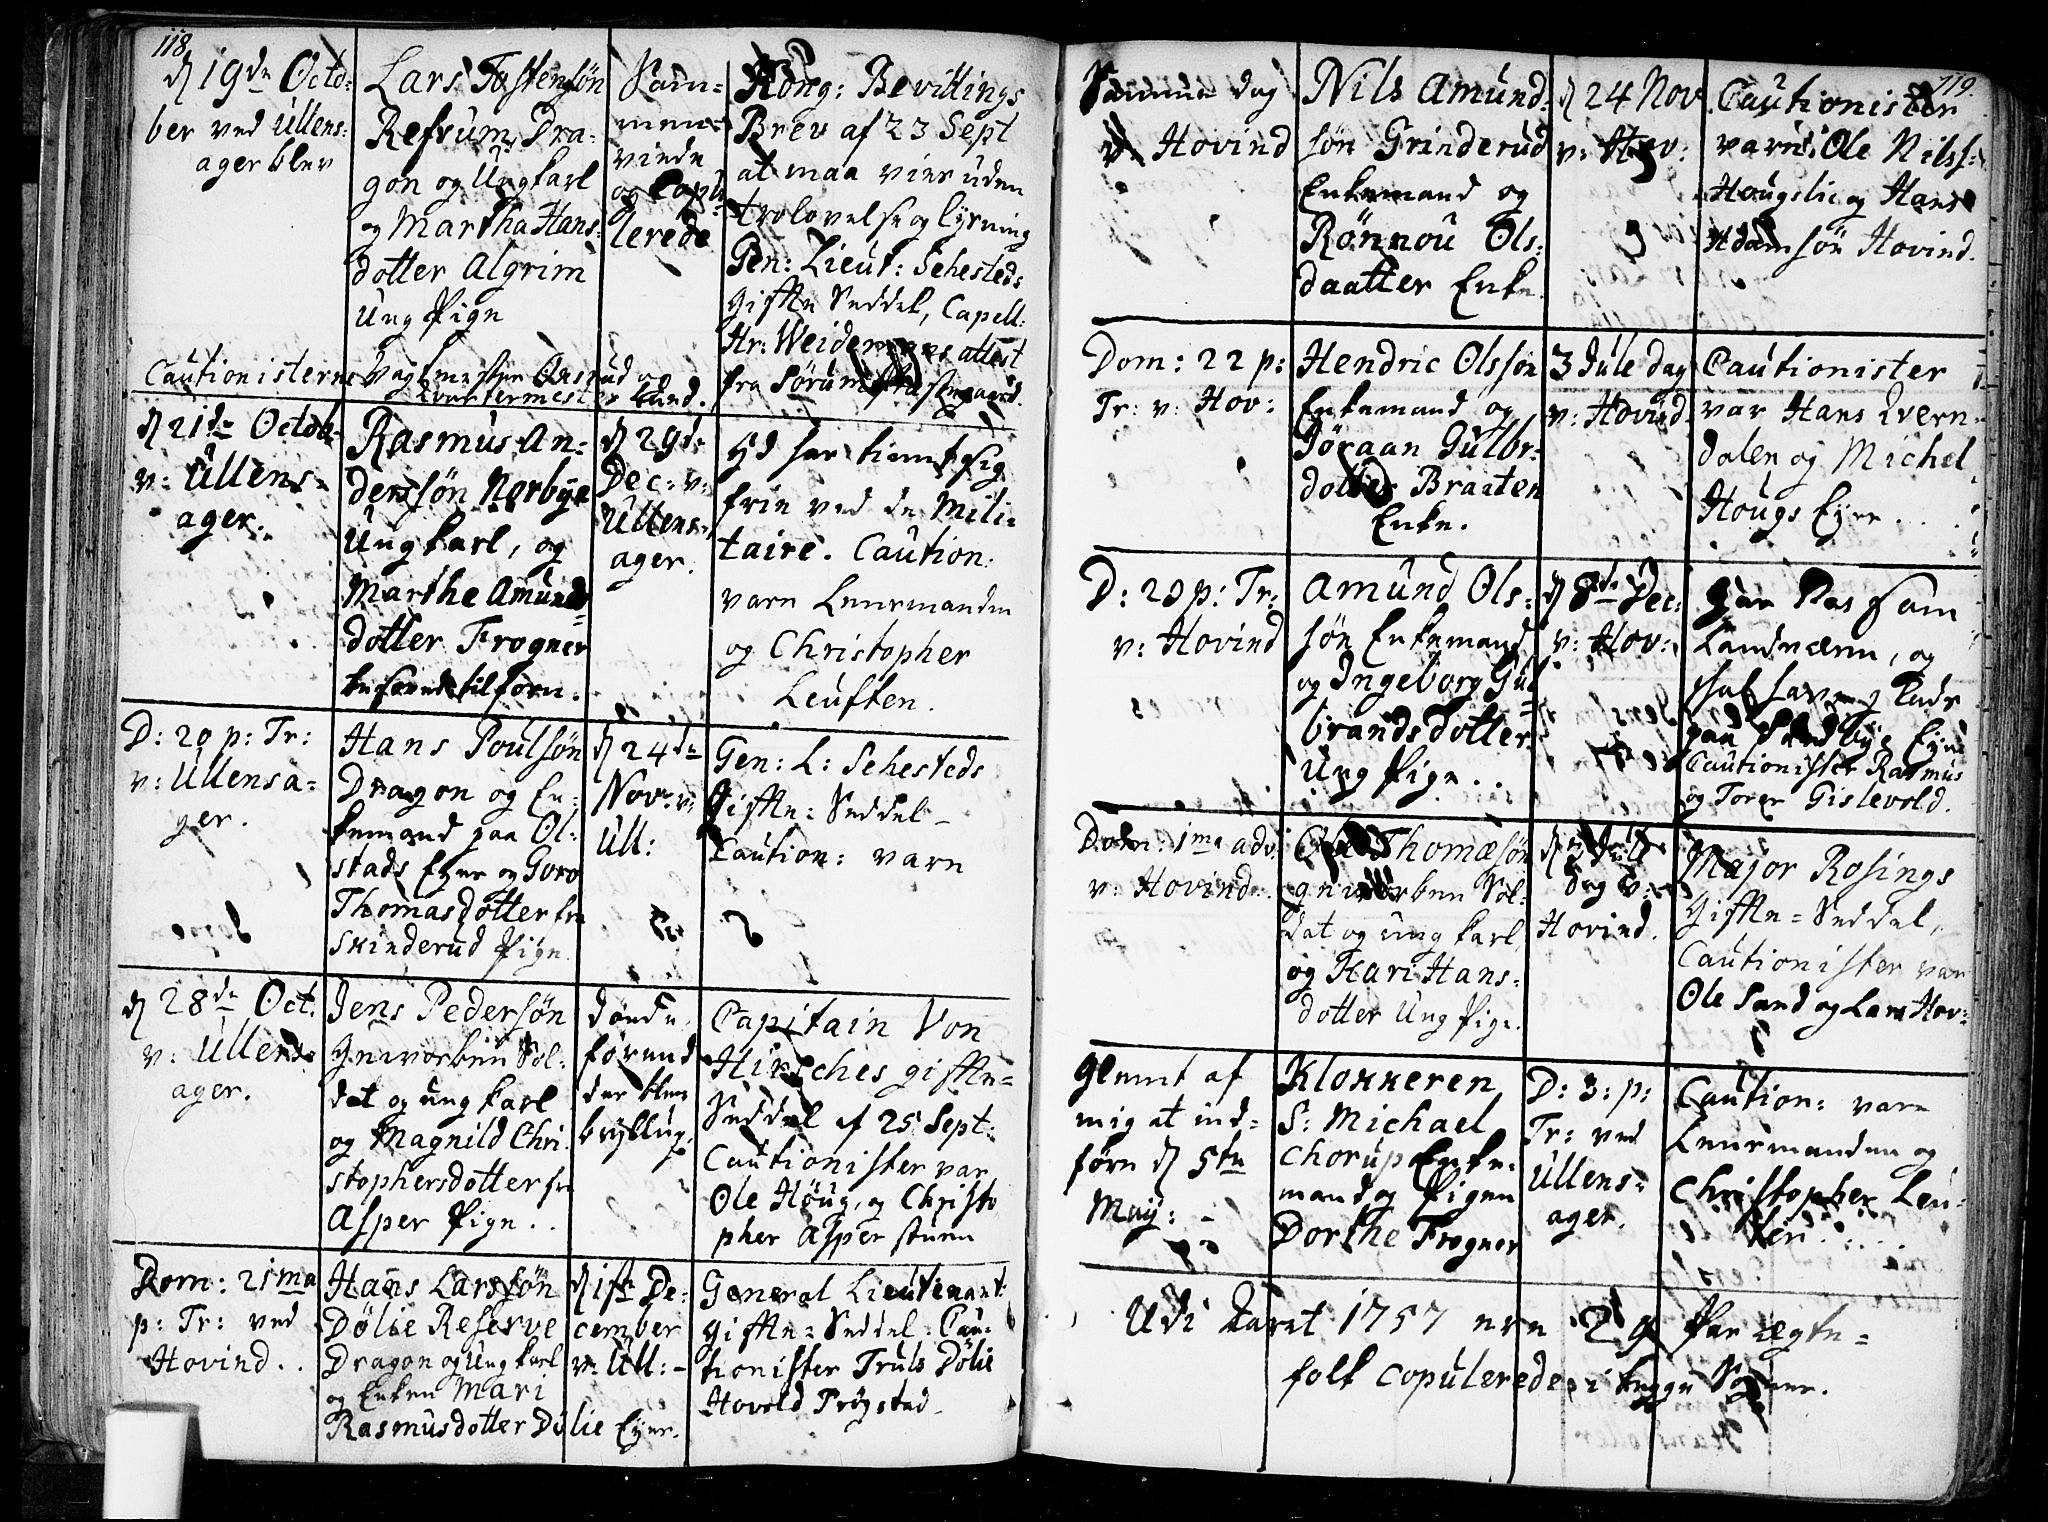 118.
d 19de Octo=
ber ved Ullens=
ager blev
Lars Tostensøn
Refsum, Dra=
gon og Ung karl
og Martha Hans=
dotter Algrim
Ung Pige
Sam=
men=
viede
og Copu=
lerede
Kong: Bevillings
Brev af 23 Sept
at maa vies uden
trolovelse og lysning
Gen: Lieut: Sehesteds
Gifte Seddel, Capell:
Hr: Weidemans attest
fra Sørum
Cautionisterne Vagtmester Aasrud og
Qvartermester Lund.
d 21de Octob.
v: Ullens=
ager.
Rasmus An=
dersøn Norbye
Ung karl, og
Marthe Amunds=
dotter Frogner
besovet tilforn.
d 29de
Dec: v:
Ullens=
ager.
Hd har tient sig
frie ved de Mili=
taire. Caution:
vare Lensmanden
og Christopher
Leuften.
D: 20 p: Tr:
v: Ullensa=
ger.
Hans Poulsøn
Dragon og En=
kemand paa Ol=
stads Eyer og Goro
Thomasdotter fra
Skinderud Pige
d 24de
Nov: v:
Ull:
Gen: L: Sehesteds
Gifte= Seddel –
Caution: vare
d 28de Oct.
v: Ullens=
ager.
Jens Pedersøn
Gevorben Sol=
dat og ung karl
og Magnild Chri=
stophersdotter fra
Asper Pige. .
døde
førend
der blev
bryllup.
Capitain Von
Hirsches gifte=
Seddel af 25 Sept:
Cautionister var
Ole Høug, og Christo
pher Asper
Dom: 21ma
p: Tr: ved
Hovind. .
Hans Larssøn
Dølie Reserve
Dragon og Ung karl
og Enken Mari
Rasmusdotter Dølie Eyer.
d 1ste De=
cember
v: Ull: –
General Lieutenant
gifte= Seddel. Cau=
tionister Truls Dølie
Hovold Trøgstad –
119.
Samme Dag
v: Hovind
Nils Amund=
søn Grinderud
Enkemand og
Rønnou Ols=
daatter Enke
d 24 Nov
v: Hov:
Cautionister
vare Ole Nilss:
Hougslie og Hans
Adamsøn Hovind.
Dom: 22 p:
Tr: v: Hov:
Hendric Olssøn
Enkemand og
Jøraan Gulbr=
dotter Braaten
Enke.
3 Jule dag
v: Hovind
Cautionister
var Hans Qvern=
dalen og Michel
Hougs Eyer . .
D: 20 p: Tr:
v: Hovind
Amund Ols=
søn Enkemand
og Ingeborg Gul
brandsdotter
Ung Pige . .
d 8de Dec:
v: Hov:
som
Landværn, og
skal have
paa Sandbye Eye
Cautionister Rasmus
og Torer Gislevold.
Dom: 1ma adv:
v: Hovind.
Ole Thomæsøn
gevorben Sol=
dat og ung karl
og Kari Hans=
dotter Ung Pige.
d 3 Jule
dag v:
Hovind.
Major Rosings
Gifte= Seddel,
Cautionister var
Ole Sand og Lars Hov=
Glemt af
mig at ind=
føre d 5te
May: –
Klokkeren
S: Michael
Chorup Enke=
mand og Pigen
Dorthe Frogner
D: 3: p:
Tr: ved
Ullens=
ager.
Caution: vare
Lensmanden og
Christopher Leu=
ten. . . .
Udi Aaret 1757 ere 29 Par ægte=
folk copulerede i begge Sogner.